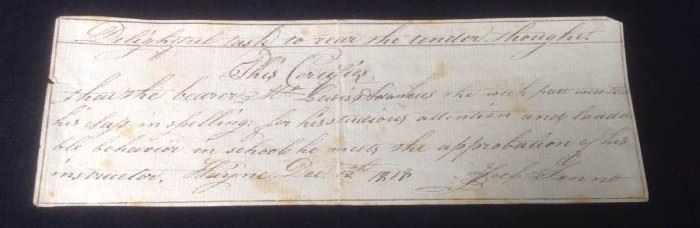 Delightful task to rear the tender thought.
This Certifies
that the bearer Mr. Lewis the week past was the
his class in spelling; for his studious attention and lauda
ble behavior in school he meets the approbation of his
instructor. Wayne Dec. 12th 1818